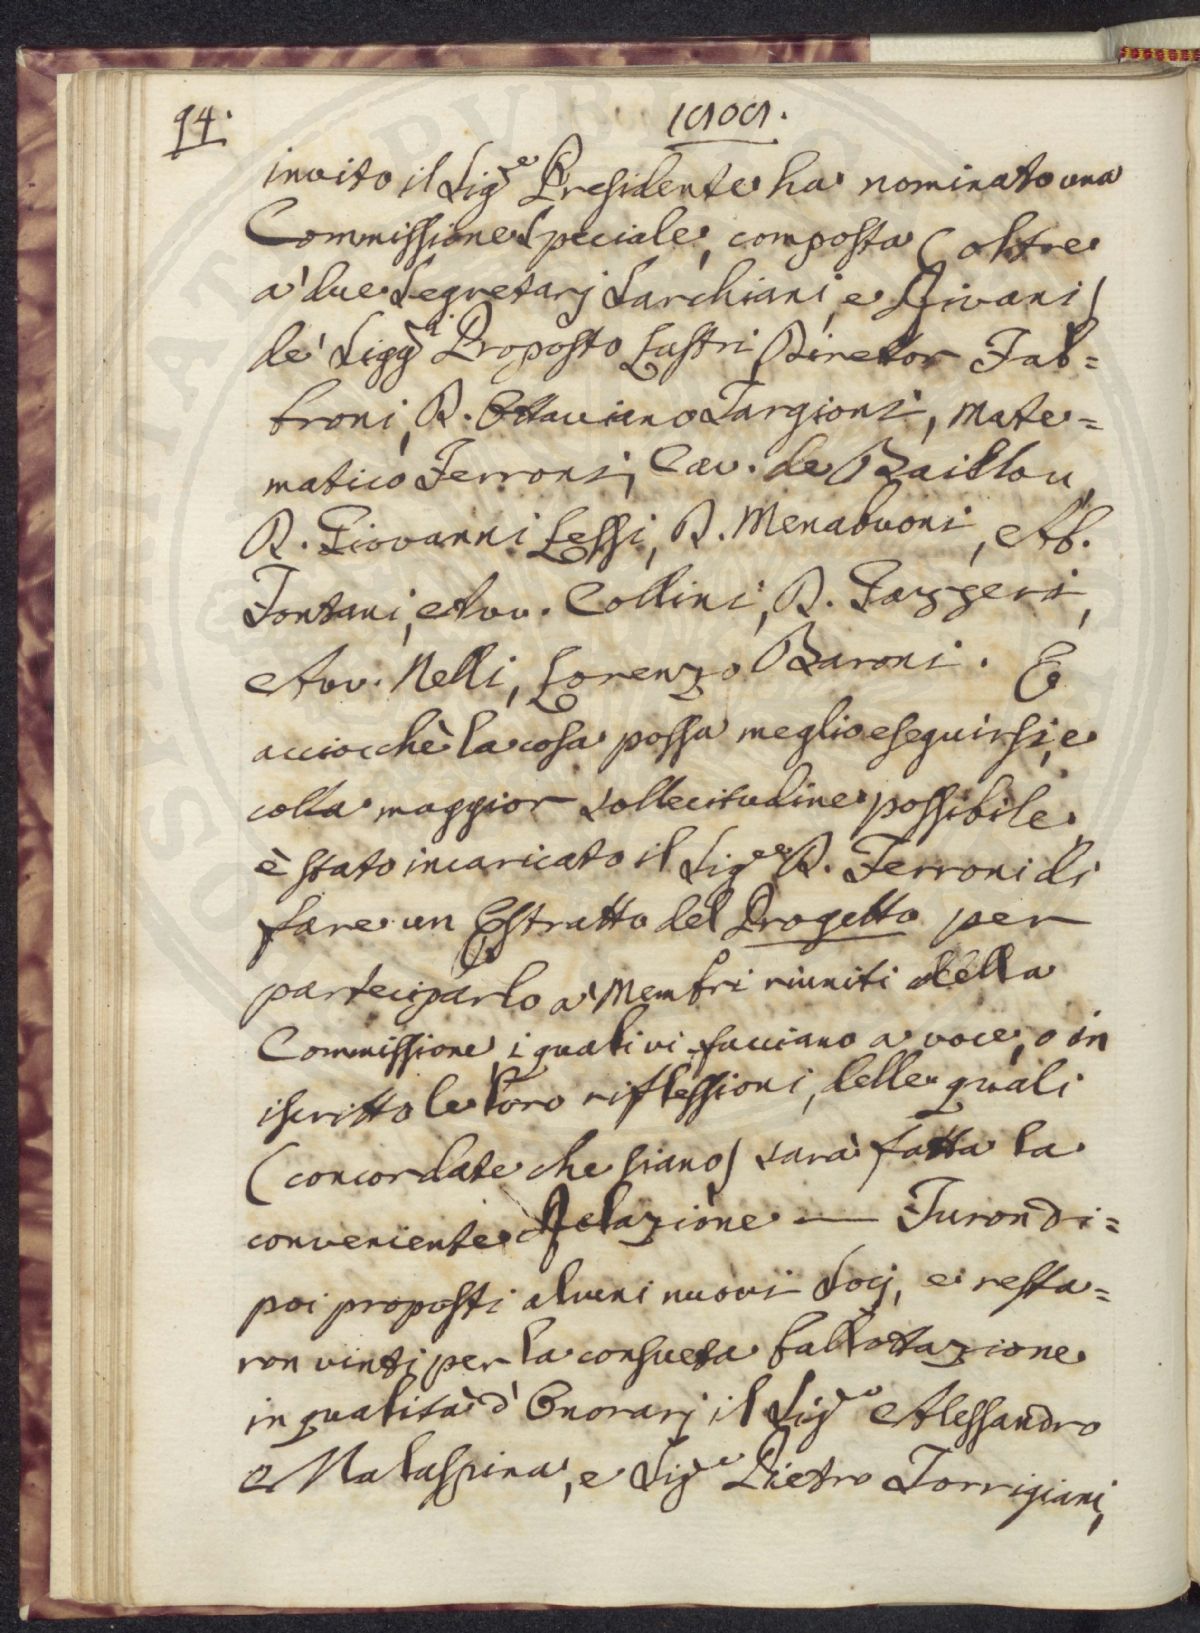 94.
invito il Sig.e Presidente ha nominato una
Commissione Speciale, composta (oltre
a' due Segretarj Sarchiani, e Rivani)
de' Sigg.i Proposto Lastri, Diretor Fab=
broni, D. Ottaviano Targioni, Mate=
matico Ferroni, Cav. de Baillou,
D. Giovanni Lessi, D. Menabuoni, Ab.
Fontani, Avv. Collini, D. Gazzeri,
Avv. Nelli, Lorenzo Baroni. E
acciocchè la cosa possa meglio eseguirsi, e
colla maggior sollecitudine possibile,
è stato incaricato il Sig.e D. Ferroni di
fare un Estratto del Progetto per
parteciparlo a' Membri riuniti della
Commissione, i quali vi facciano a voce, o in
iscritto le loro riflessioni, delle quali
(concordate che siano) sarà fatta la
conveniente Relazione — Furon di=
poi proposti alcuni nuovi Socj, e resta=
ron vinti per la consueta ballottazione
in qualità d' Onorarj il Sig.e Alessandro
Malaspina, e Sig.e Pietro Torrigiani,